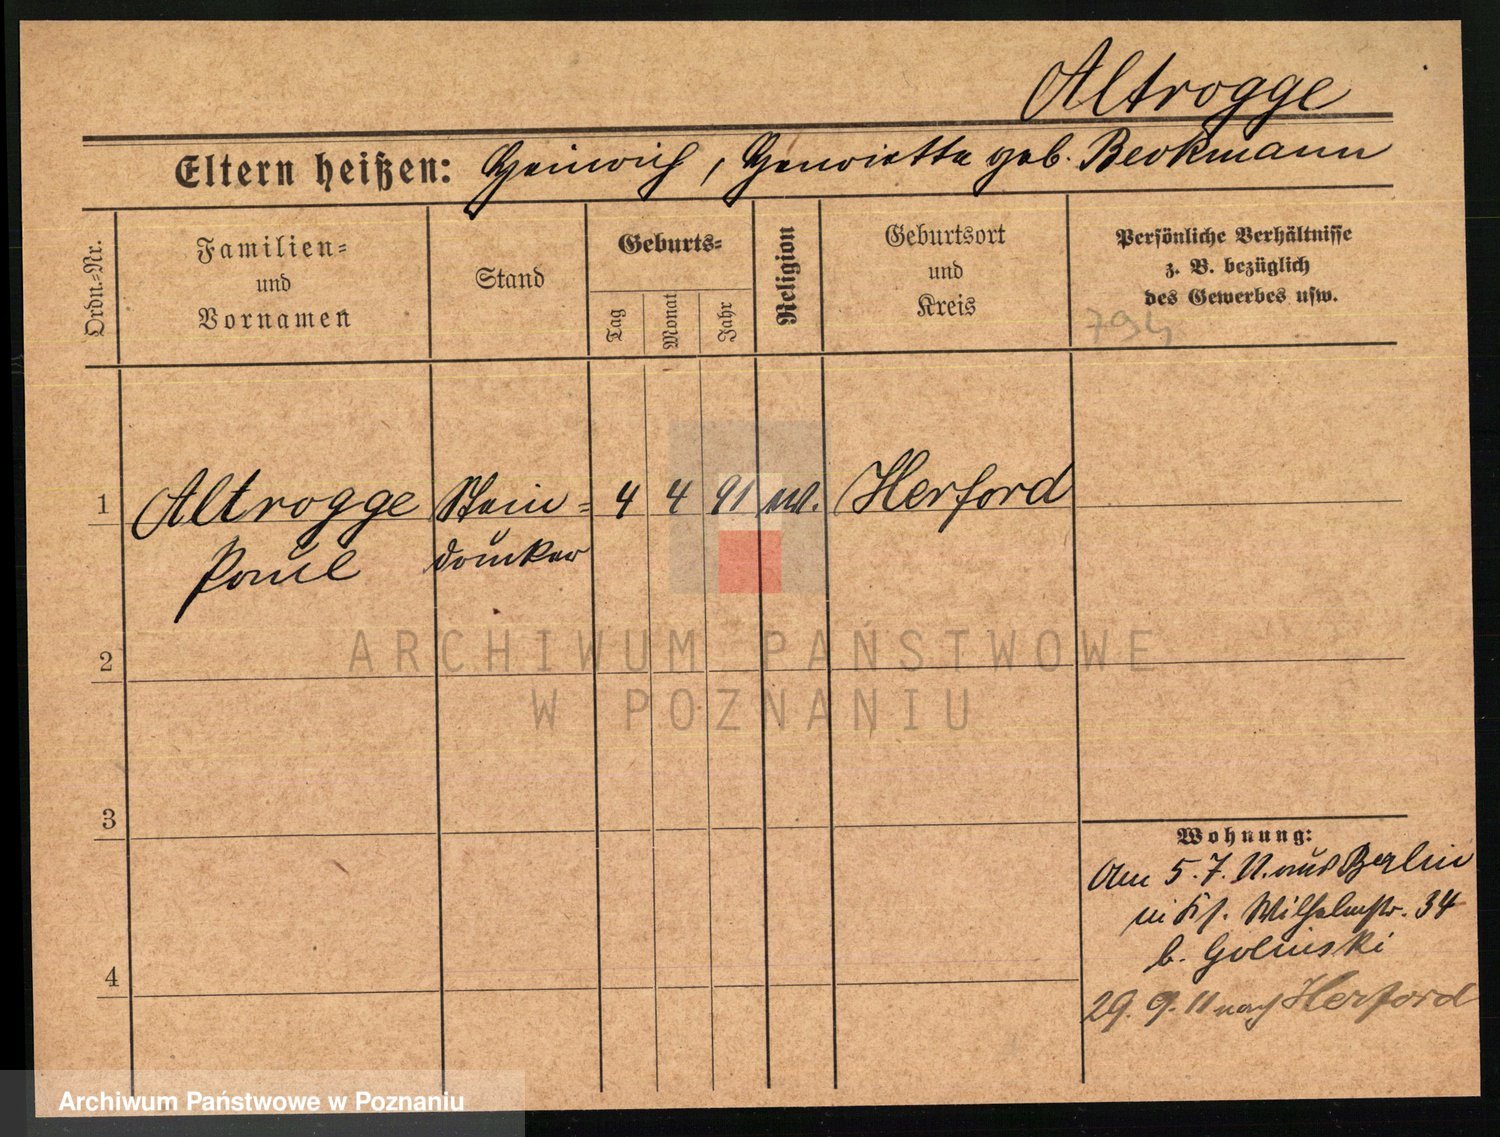 Altrogge
Eltern heißen: Heinrich, Henriette geb. Beckmann
Ordn.-Nr.
Familien-
und
Vornamen
Stand
Geburts-
Tag
Monat
Jahr
Religion
Geburtsort
und
Kreis
Persönliche Verhältnisse
z. B. bezüglich
des Gewerbes usw.
794
1 Altrogge Stein- 4 4 91 ev. Herford
Paul drucker
2
3
4
Wohnung:
Am 5.7.11. aus Berlin
Wilhelmstr. 34
b. Golinski
29. 9. 11 nach Herford
ARCHIWUM PAŃSTWOWE
W POZNANIU
Archiwum Państwowe w Poznaniu